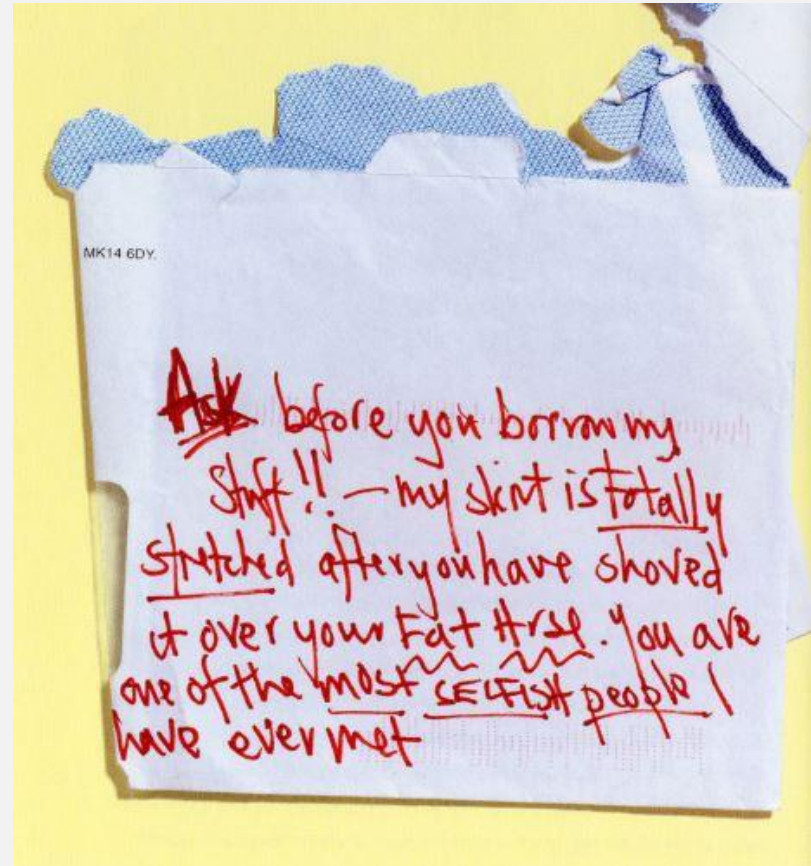 MK14 6DY.
Ask before you borrow my
Stuff!! – my skirt is totally
stretched after you have shoved
it over your Fat Arse. You are
one of the most SELFISH people I
have ever met